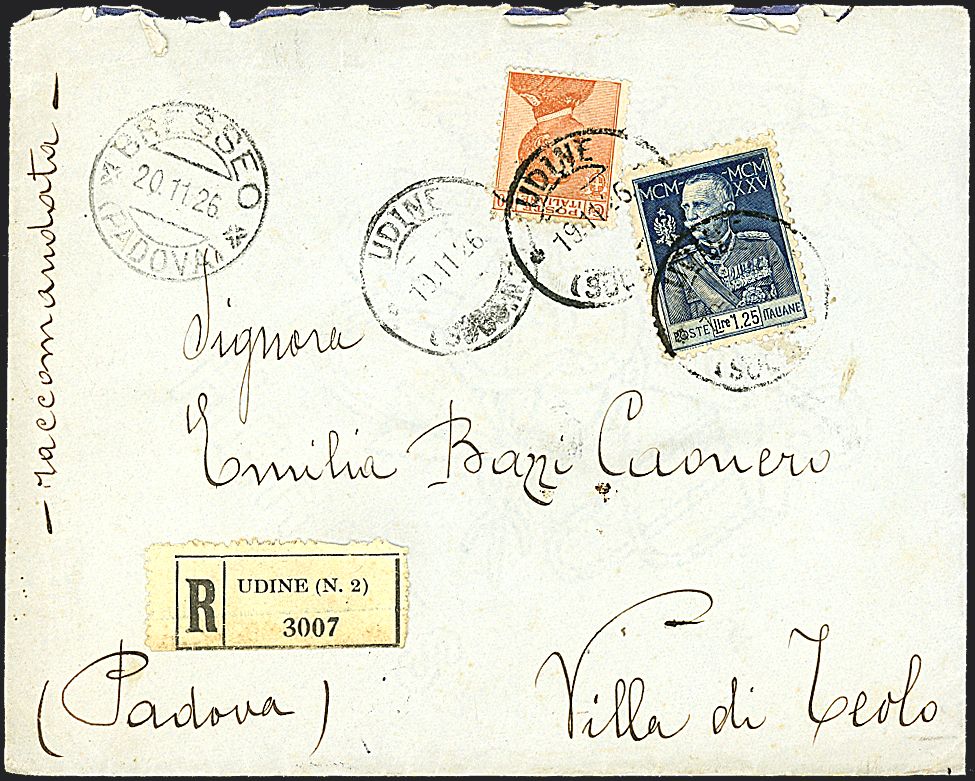 — raccomandata —
BRESSEO
20.11.26
(PADOVA)
UDINE
19.11.26
UDINE
POSTE
ITALIANE
MCM - MCM
XXV
POSTE Lire 1.25 ITALIANE
Signora
Emilia Bazzi Caonero
R UDINE (N. 2)
3007
(Padova) Villa di Teolo